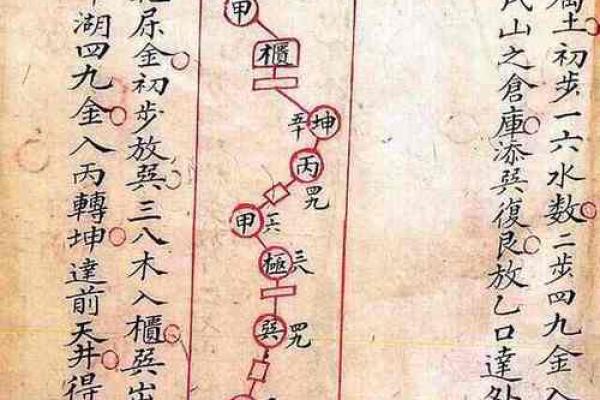 土初步一六水数二步四九金入
山之倉庫添巽復艮放乙口達外
甲
櫃
坤
平
丙
四九
甲
六
極
三八
巽
四九
尿金初步放巽三八木入櫃巽出
湖四九金入丙轉坤達前天井得